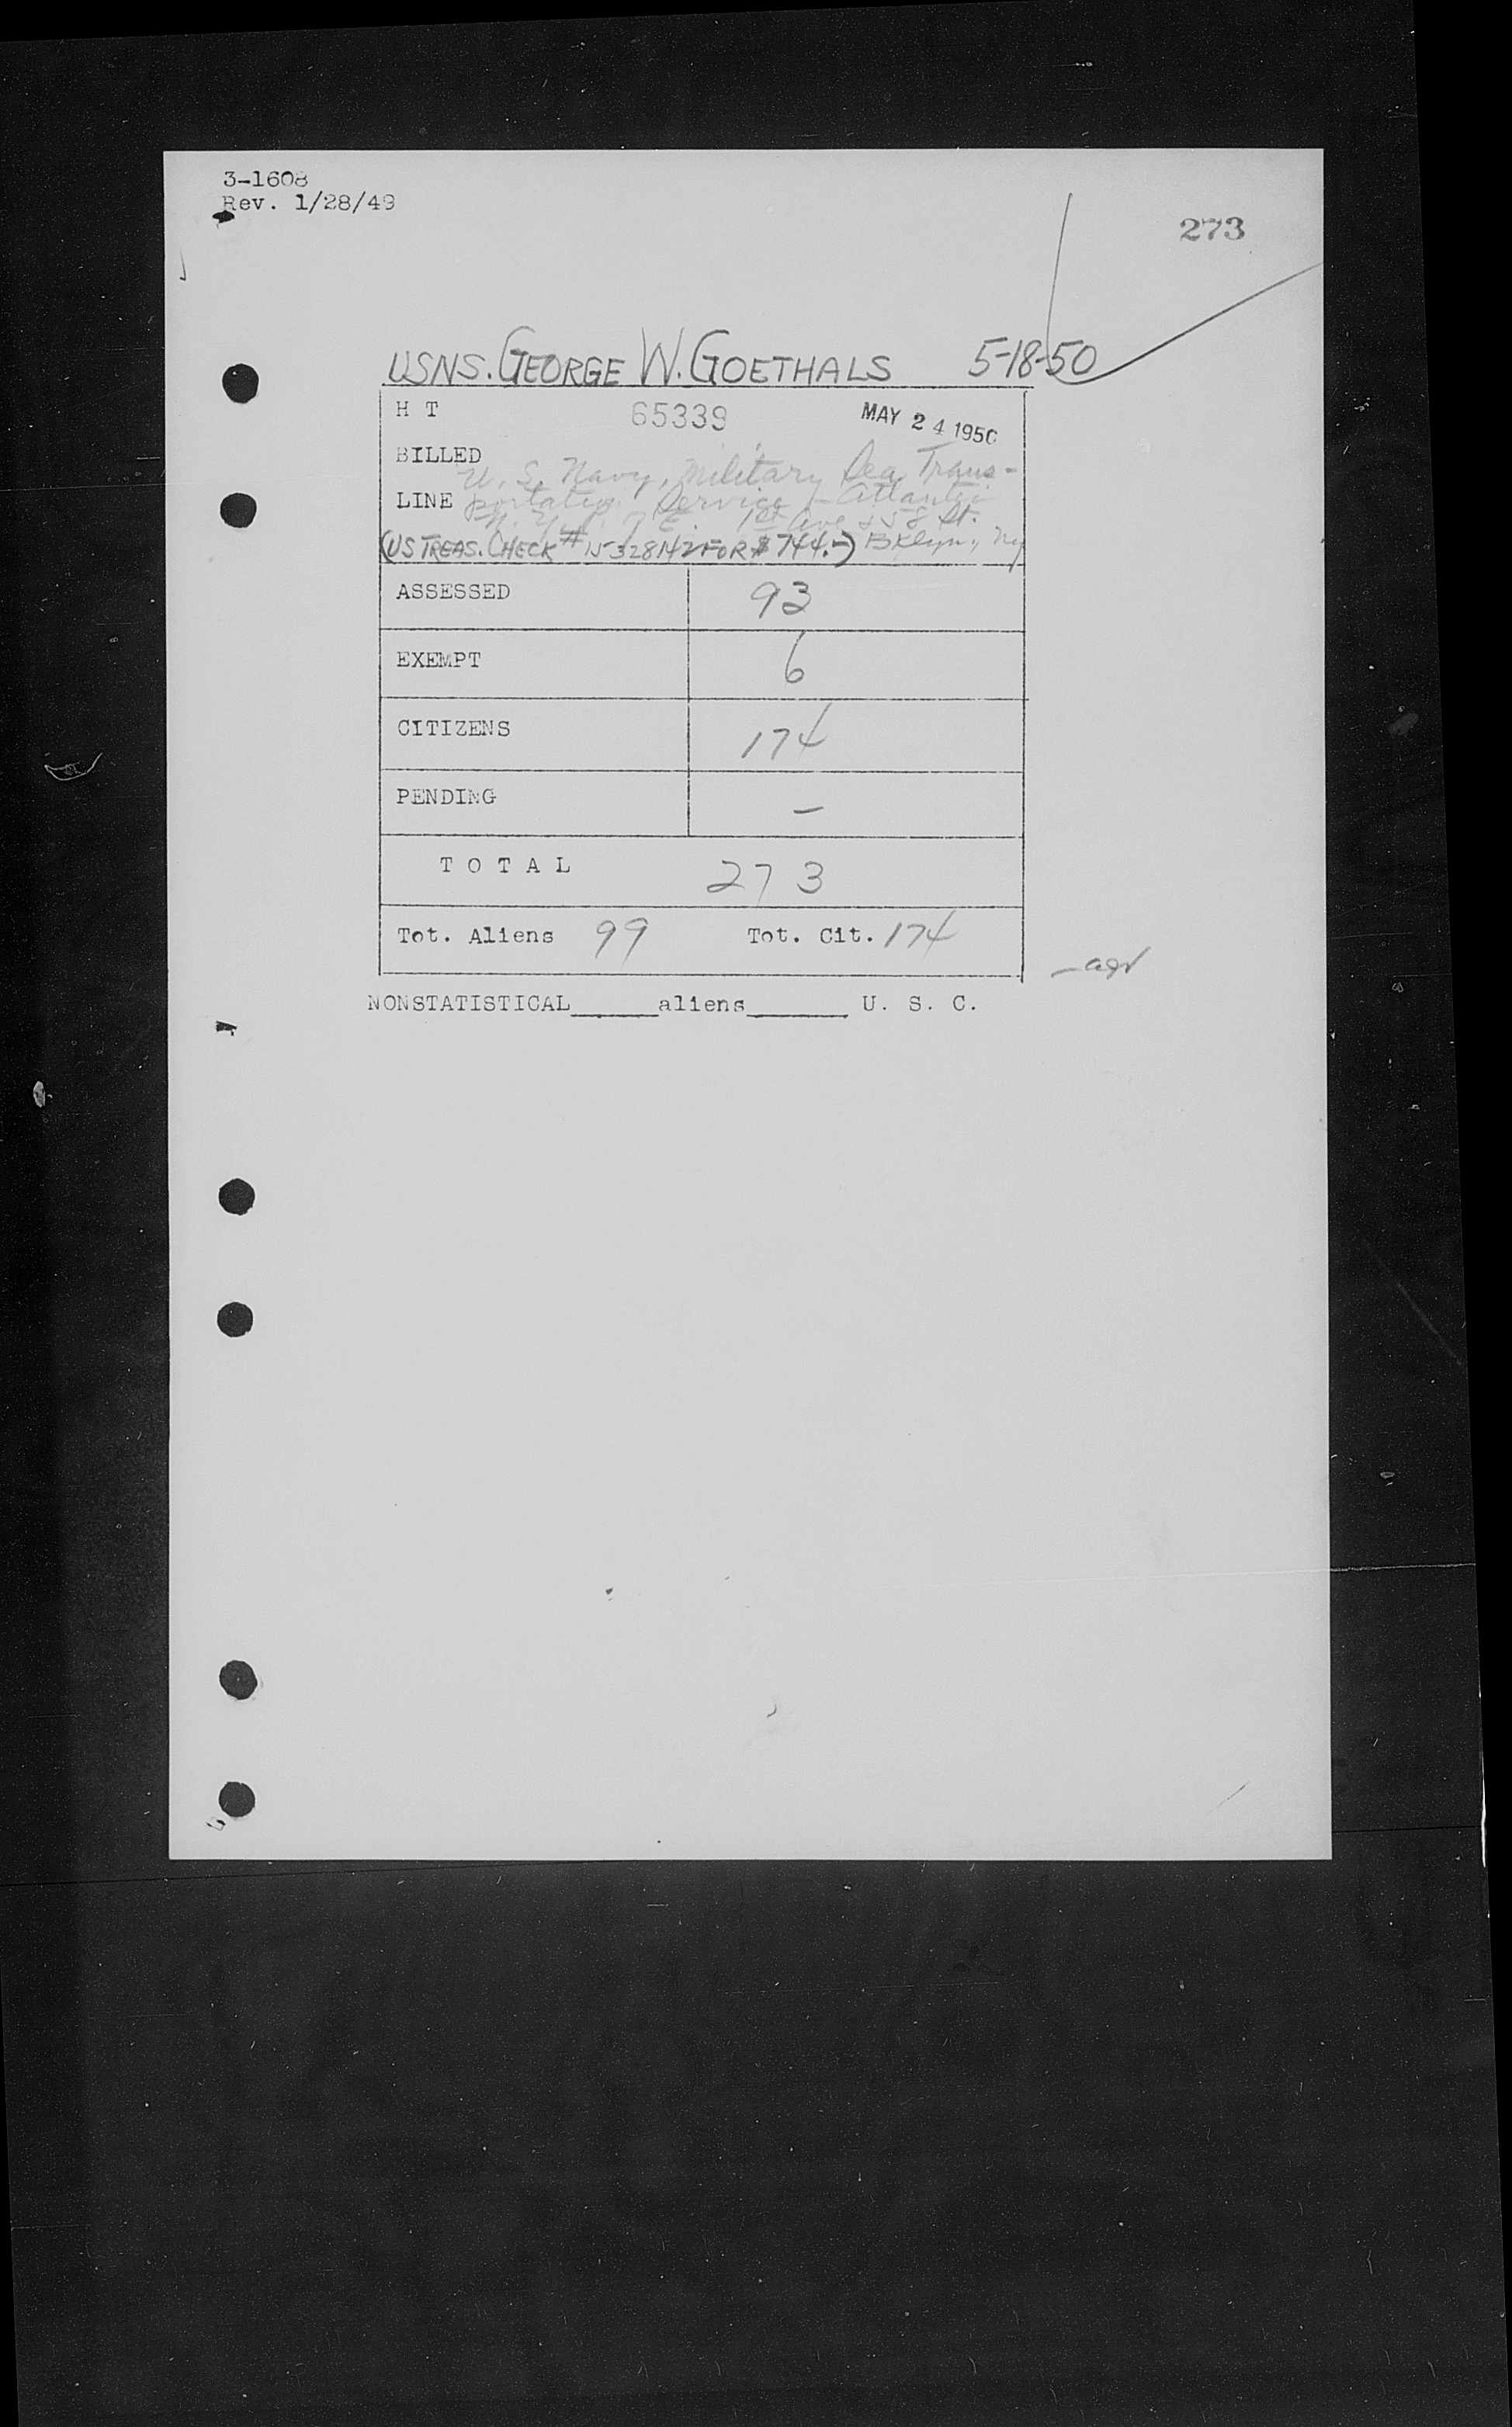 3-1608
Rev. 1/28/49
273
USNS. GEORGE W. GOETHALS 5-18-50
H T 65339 MAY 24 1950
BILLED
U. S. Navy, Military Sea Trans-
LINE portation Service - Atlantic
1st Ave & 58 St.
(US TREAS. CHECK # 15328142 FOR $ 744.-) Bklyn., NY
ASSESSED 93
EXEMPT 6
CITIZENS 174
PENDING -
T O T A L 273
Tot. Aliens 99 Tot. Cit. 174
NONSTATISTICAL_____aliens______ U. S. C.